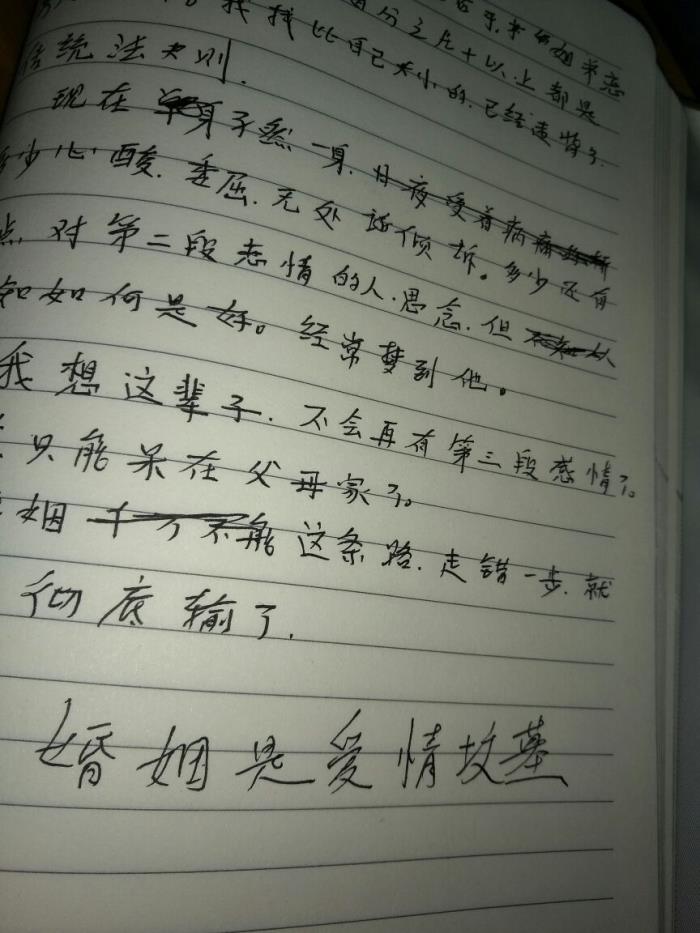 百分之九十以上都是
我找比自己大/小的.已经违背了.
传统法大则.
现在 孑然一身.日夜受着病痛
多少心酸.委屈.无处诉倾诉。多少还有
点对第二段恋情的人.思念.但
知如何是好。经常梦到他。
我想这辈子.不会再有第三段感情了。
只能呆在父母家了。
姻 这条路.走错一步.就
彻底输了.
婚姻是爱情坟墓